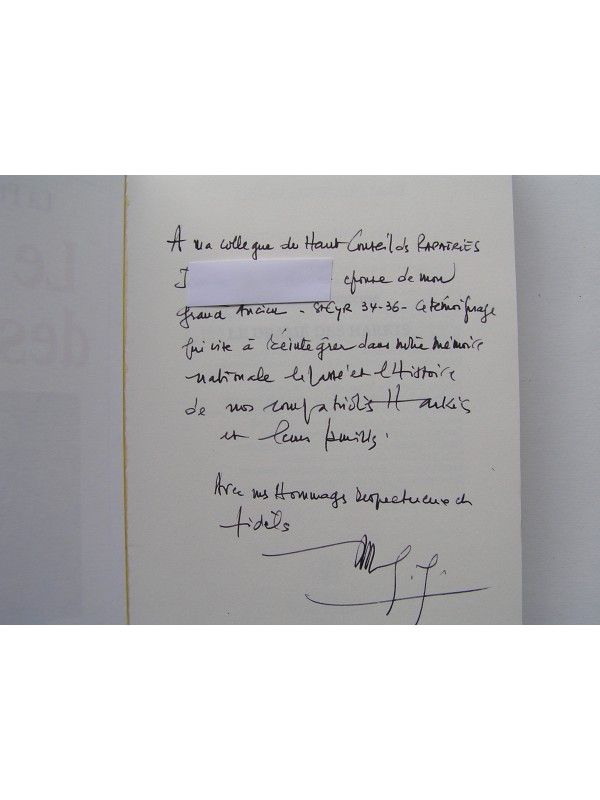 Le
des
A ma collegue du Haut Conseil des RAPATRIES
J epouse de mon
grand Ancien - St Cyr 34-36 - ce témoignage
qui vise à réintégrer dans notre mémoire
nationale le passé et l'Histoire
de nos compatriotes Harkis
et leurs familles.
Avec mes Hommages Respectueux et
fidèles